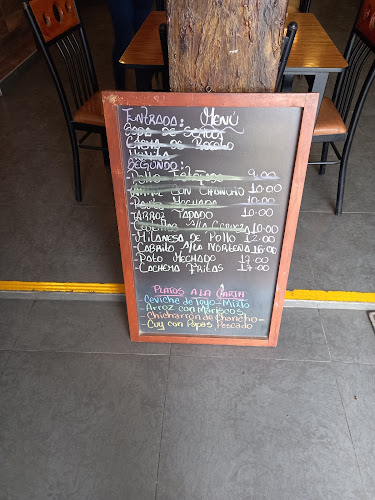 Entrada: Menú
Sopa de Sémola
Crema de Rocoto
Humita
Segundo:
Pollo Estofado 9.00
Tamal con Chancho 10.00
Papas Mechada 10.00
Arroz Tapado 10.00
Costillas a la Cerveza 10.00
-Milanesa de Pollo 12.00
-Cabrito a la Norteña 16.00
Pato Mechado 17.00
-Cachema Fritas 17.00
Platos a la Carta
-Ceviche de Toyo-Mixto
Arroz con Mariscos
-Chicharrón de Chancho-
-Cuy con Papas Pescado